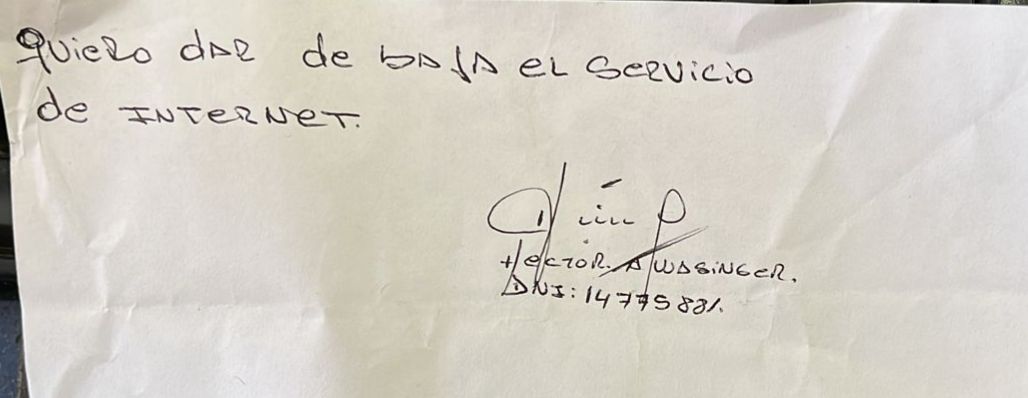 Quiero dar de baja el servicio
de INTERNET.
Hector. A WASINGER.
DNI: 14775881.